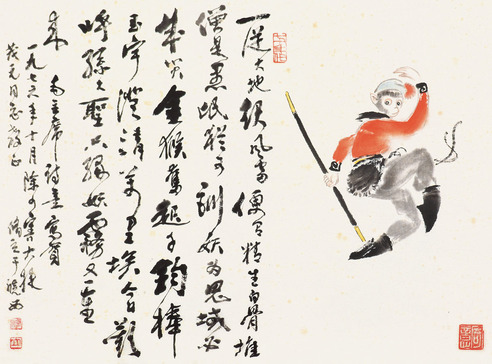 一從大地起風雷 便有精生白骨堆
僧是愚氓猶可訓 妖為鬼蜮必
成災 金猴奮起千鈞棒
玉宇澄清萬里埃 今日歡
呼孫大聖只緣妖霧又重
來 毛主席詩意寫賀
一九七六年十月除四害大捷
同志教正